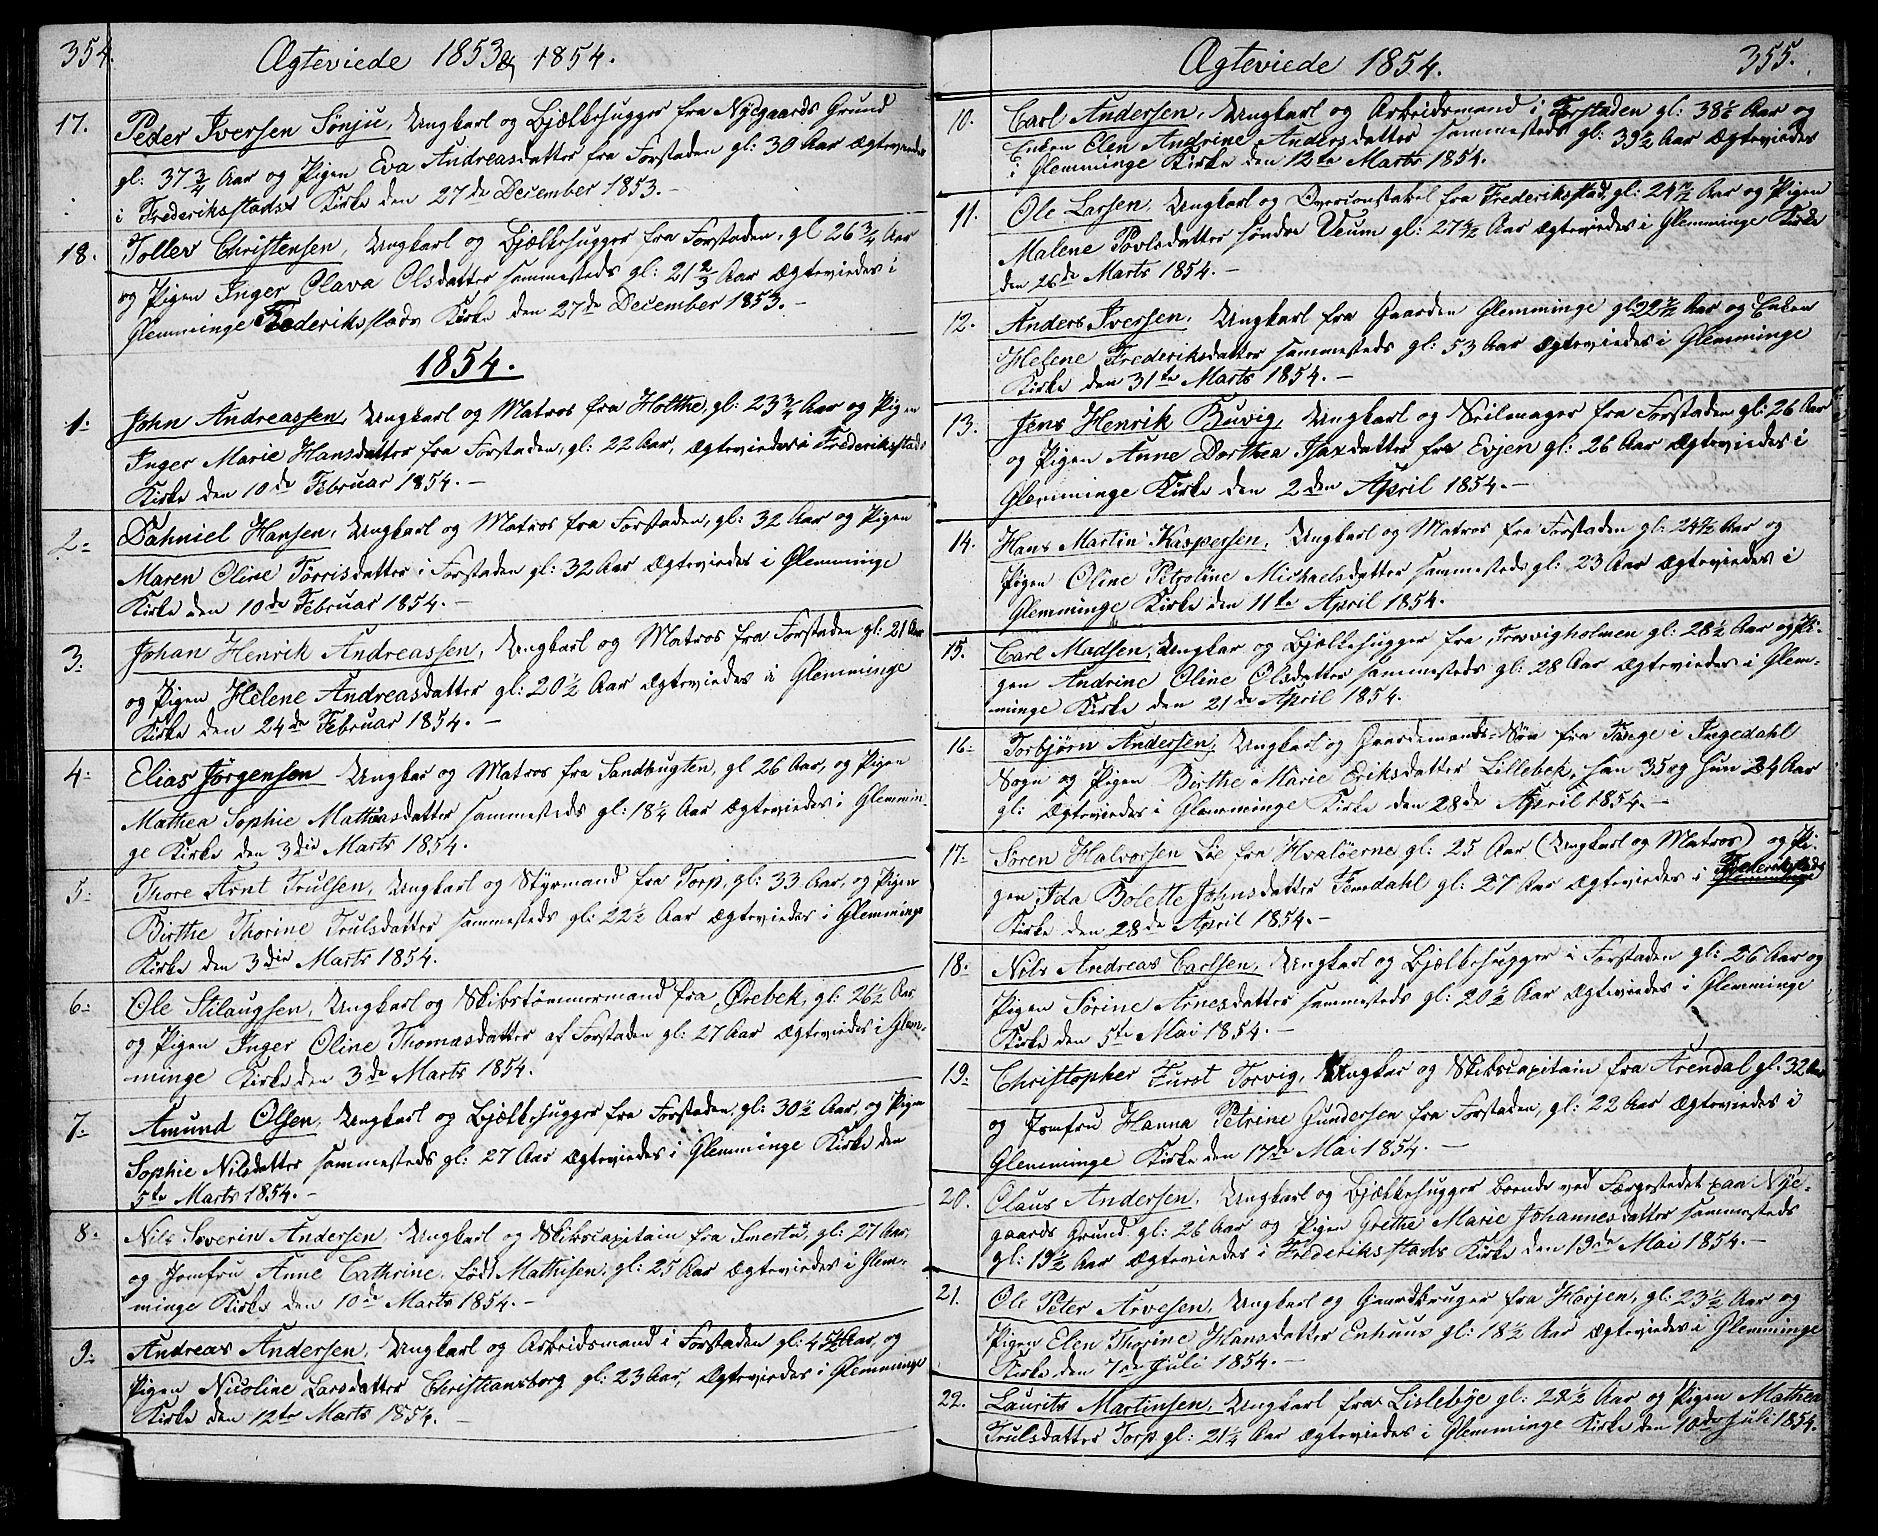 354.
Ægteviede 1853 og 1854.
17. Peder Iversen Sönju, Ungkarl og Bjælkehugger fra Nÿegaards Grund
gl: 37 3/4 Aar og Pigen Eva Andreasdatter fra Forstaden gl: 30 Aar Ægteviedes
i Frederiksstads Kirke den 27de December 1853.-
18. Tollev Christensen, Ungkarl og Bjælkehugger fra Forstaden, gl 26 3/4 Aar
og Pigen Inger Olava Olsdatter sammesteds gl: 21 2/3 Aar Ægteviedes i
Glemminge Frederiksstads Kirke den 27de December 1853.-
1854.
1. John Andreassen, Ungkarl og Matros fra Holthe, gl: 23 3/4 Aar og Pigen
Inger Marie Hansdatter fra Forstaden, gl: 22 Aar, Ægteviedes i Frederiksstads
Kirke den 10de Februar 1854.-
2. Dahniel Hansen, Ungkarl og Matros fra Forstaden, gl: 32 Aar og Pigen
Maren Oline Törrisdatter i Forstaden gl: 32 Aar Ægteviedes i Glemminge
Kirke den 10de Februar 1854.-
3. Johan Henrik Andreassen, Ungkarl og Matros fra Forstaden gl: 21 Aar
og Pigen Helene Andreasdatter gl: 20 1/2 Aar Ægteviedes i Glemminge
Kirke den 24de Februar 1854.-
4. Elias Jørgensen Ungkar og Matros fra Sandbugten, gl 26 Aar, og Pigen
Mathea Sophie Mathiasdatter sammesteds gl: 18 1/4 Aar Ægteviedes i Glemmin-
ge Kirke den 3die Marts 1854.
5. Thore Arnt Trulsen, Ungkarl og Styrmand fra Torp, gl: 33 Aar, og Pigen
Birthe Thorine Trulsdatter sammesteds gl: 22 1/2 Aar Ægteviedes i Glemminge
Kirke den 3die Marts 1854.
6. Ole Stilaugsen, Ungkarl og Skibstömmermand fra Ørebek, gl: 26 1/2 Aar
og Pigen Inger Oline Thomasdatter af Forstaden gl: 27 Aar Ægteviedes i Glem-
minge Kirke den 3de Marts 1854.
7. Amund Olsen, Ungkarl og Bjælkehugger fra Forstaden, gl: 30 1/2 Aar, og Pigen
Sophie Nilsdatter sammesteds gl: 27 Aar Ægteviedes i Glemminge Kirke den
5te Marts 1854.-
8. Nils Severin Andersen, Ungkarl og Skibscapitain fra Smertu, gl: 27 Aar,
og Jomfru Anne Cathrine født Mathisen, gl: 25 Aar Ægteviedes i Glem-
minge Kirke den 10de Marts 1854.-
9. Andreas Andersen, Ungkarl og Arbeidsmand i Forstaden gl: 45 1/2 Aar, og
Pigen Nicoline Larsdatter Christiansborg gl: 23 Aar, Ægteviedes i Glemminge
Kirke den 12te Marts 1854.-
Ægteviede 1854.
355.
10. Carl Andersen, Ungkarl og Arbeidsmand i Forstaden gl: 38 1/2 Aar og
Enken Elen Andrine Andersdatter sammesteds gl: 39 1/2 Aar Ægteviedes
i Glemminge Kirke den 12te Marts 1854.
11. Ole Larsen, Ungkarl og fra Frederiksstad, gl: 24 Aar og Pigen
Malene Povlsdatter søndre Veum gl: 27 Aar Ægteviedes i Glemminge Kirke
den 26de Marts 1854.-
12. Anders Iversen, Ungkarl fra Gaarden Glemminge gl: 22 Aar og Enken
Helene Frederiksdatter sammesteds gl: 53 Aar Ægteviedes i Glemminge
Kirke den 31te Marts 1854.-
13. Jens Henrik Buvig, Ungkarl og Seilmager fra Forstaden gl: 26 Aar
og Pigen Anne Dorthea Isaxdatter fra Evjen gl: 26 Aar Ægteviedes i
Glemminge Kirke den 2den April 1854.-
14. Hans Martin Kaspersen, Ungkarl og Matros fra Forstaden gl: 24 1/2 Aar og
Pigen Oline Petroline Michaelsdatter sammesteds gl: 23 Aar Ægteviedes i
Glemminge Kirke den 11te April 1854.
15. Carl Madsen, Ungkar og Bjælkehugger fra Trosvigholmen gl: 28 1/2 Aar og Pi-
gen Andrine Oline Olsdatter sammesteds gl: 28 Aar Ægteviedes i Glem-
minge Kirke den 21de April 1854.
16. Torbjørn Andersen, Ungkarl og Gaardmands Søn fra i Ingedahl
Sogn og Pigen Birthe Marie Eriksdatter Lillebek, han 35 og hun 24 Aar
gl: Ægteviedes i Glemminge Kirke den 28de April 1854.-
17. Sören Halvorsen Löe fra Hvalöerne gl: 25 Aar (Ungkarl og Matros) og Pi-
gen Ida Bolette Johnsdatter Femdahl gl: 27 Aar Ægteviedes i Frederiksstads Glemminge
Kirke den 28de April 1854.-
18. Nils Andreas Carlsen, Ungkarl og Bjælkehugger i Forstaden gl: 26 Aar og
Pigen Sörine Arnesdatter sammesteds gl: 20 1/2 Aar Ægteviedes i Glemminge
Kirke den 5te Mai 1854.-
19. Christopher Furst Torvig, Ungkar og Skibscapitain fra Arendal gl: 32 Aar
og Jomfru Hanna Petrine Gundersen fra Forstaden, gl: 22 Aar Ægteviedes i
Glemminge Kirke den 17de Mai 1854.-
20. Olaus Andersen, Ungkarl og Bjælkehugger boende ved Færgestedet paa Nÿe-
gaards Grund gl: 26 Aar og Pigen Grethe Marie Johannesdatter sammesteds
gl: 19 1/2 Aar Ægteviedes i Frederiksstads Kirke den 19de Mai 1854.-
21. Ole Peter Arvesen, Ungkarl og Gaardbruger fra Horjen, gl: 23 1/2 Aar og
Pigen Elen Thorine Hansdatter Enhuus gl: 18 1/2 Aar Ægteviedes i Glemminge
Kirke den 7de Juli 1854.-
22. Laurits Martinsen, Ungkarl fra Lislebÿe gl: 22 1/2 Aar og Pigen Mathea
Trulsdatter Torp gl: 21 1/4 Aar Ægteviedes i Glemminge Kirke den 10de Juli 1854.